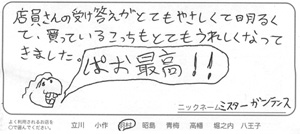 店員さんの受け答えがとてもやさしくて明るく
て、買っているこっちもとてもうれしくなって
きました。
ぱお最高!!
ニックネーム ミスターガンテンス
よく利用されるお店を
○で囲んでください。
立川 小作 昭島 青梅 高幡 堀之内 八王子